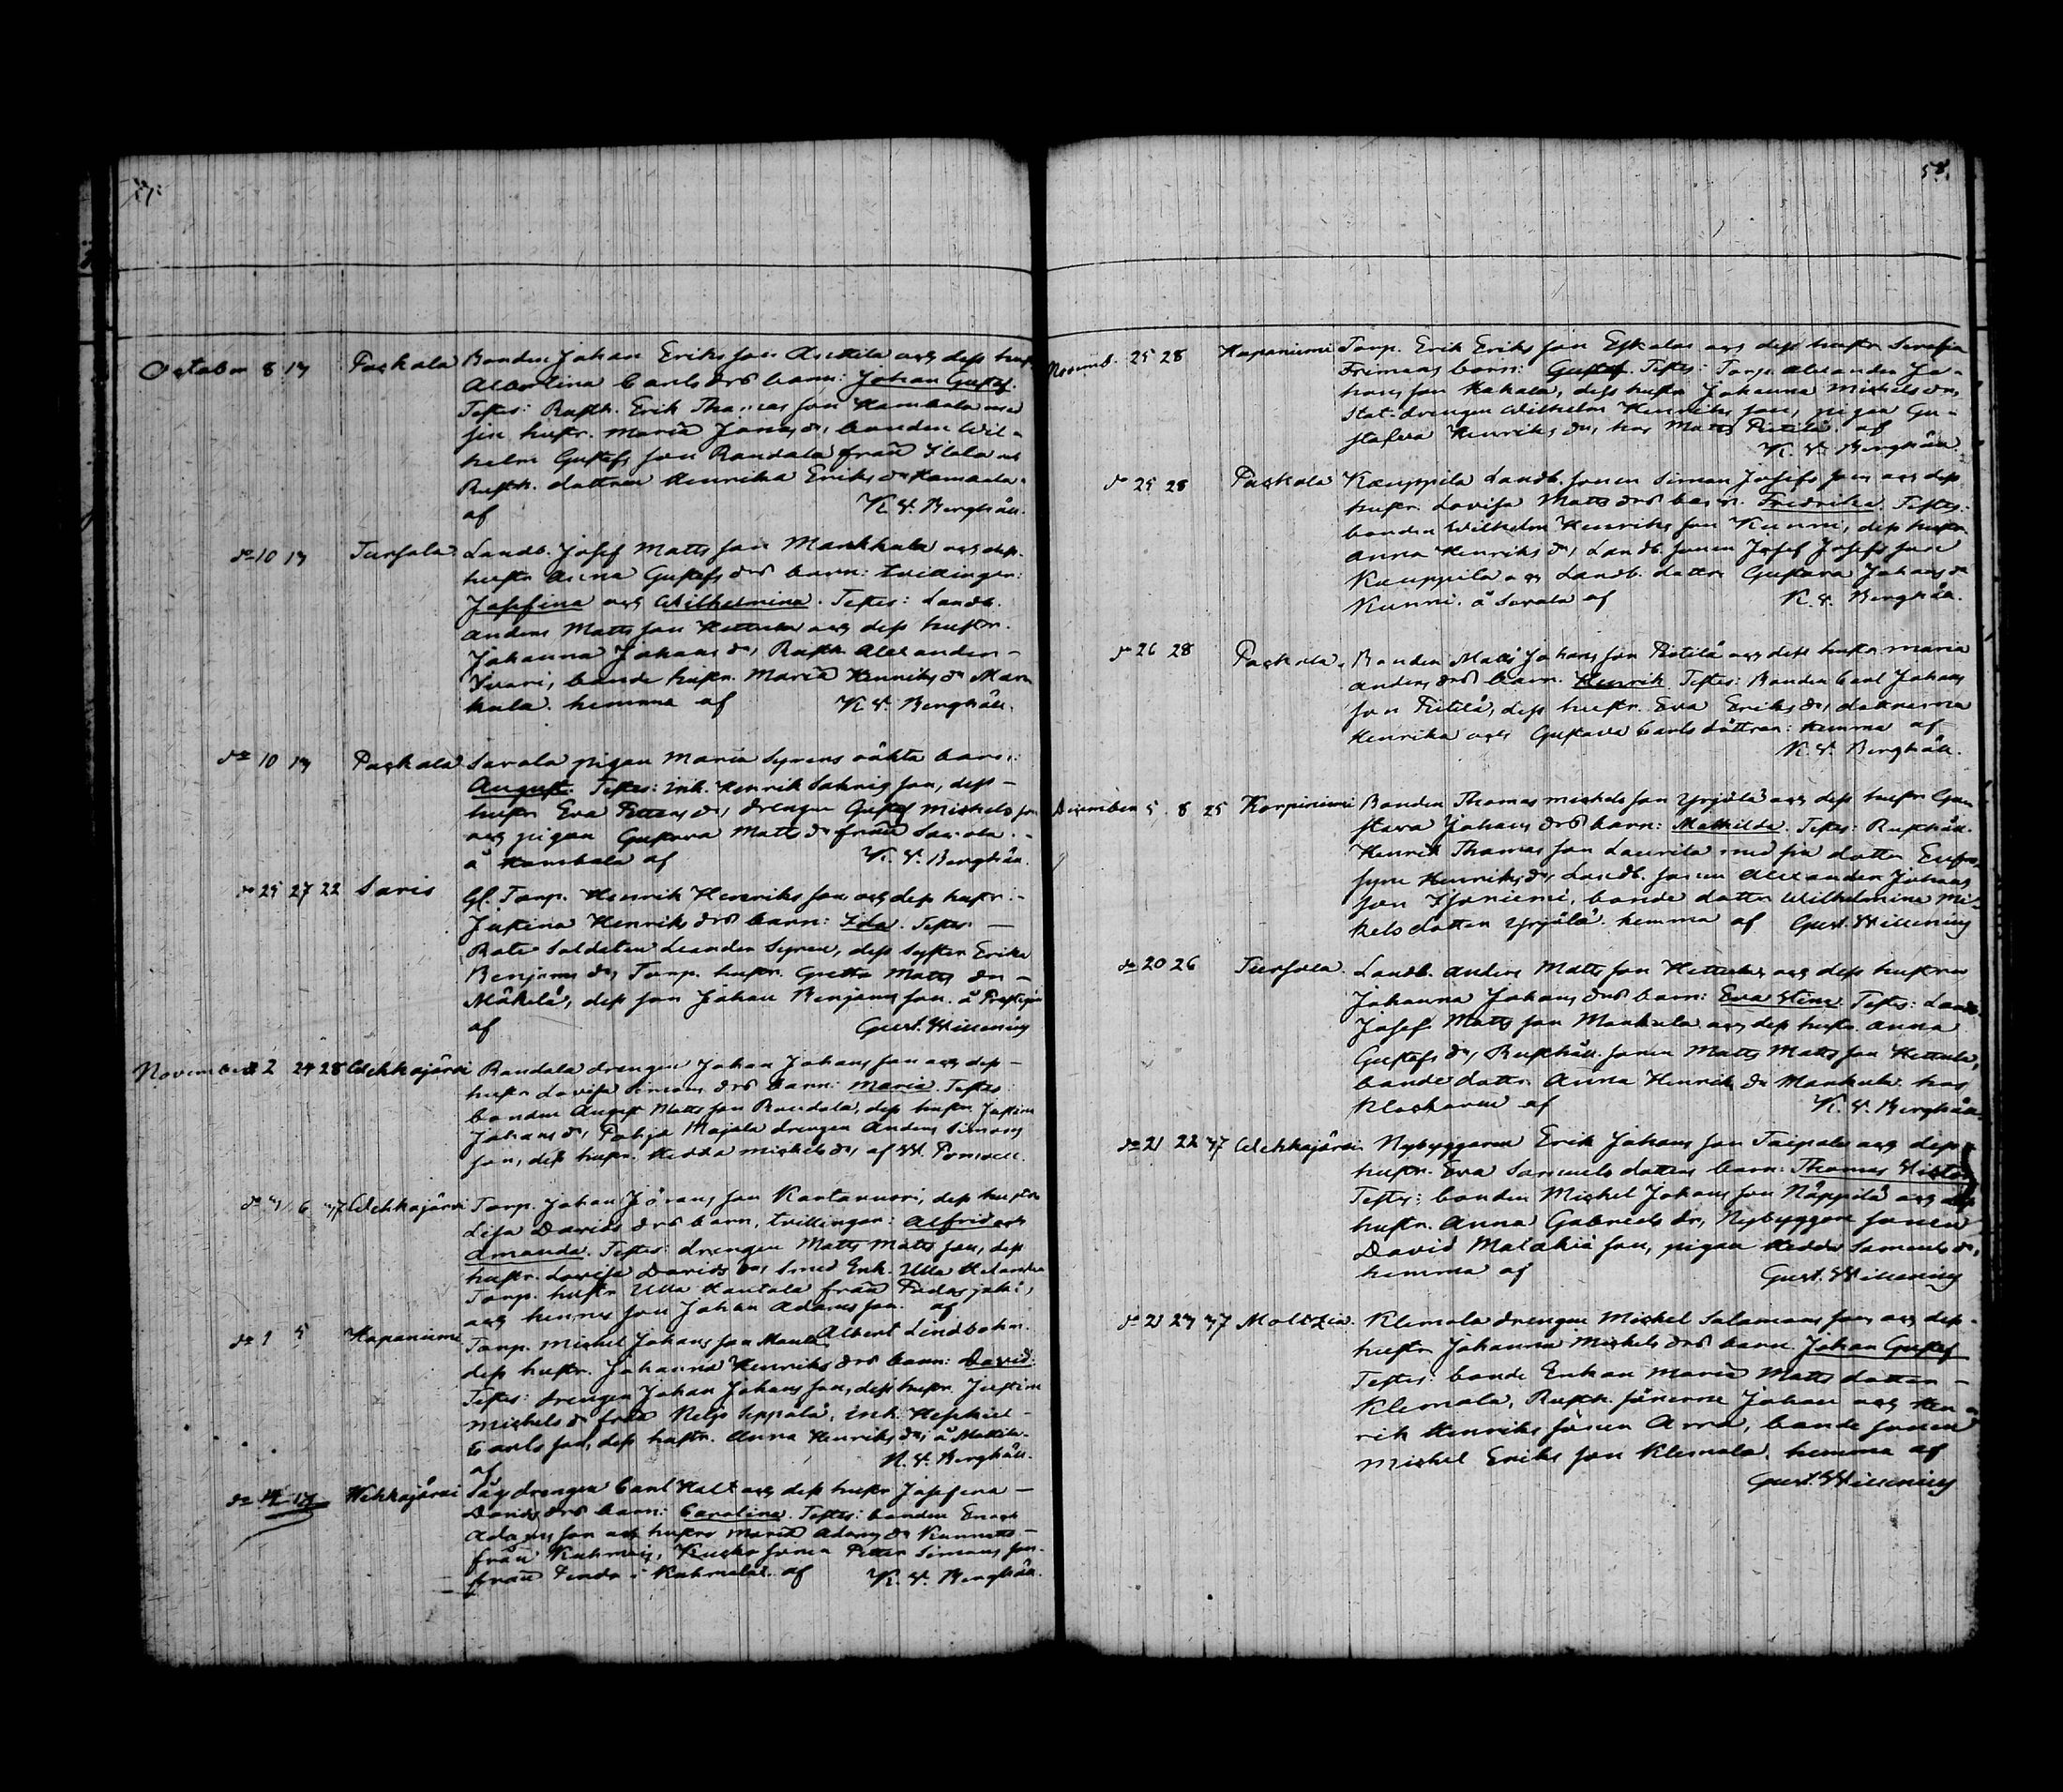 58.
October 8 14 Paskala Bonden Johan Eriks son Anttila och dess hustr
Albertina Carls drs barn: Johan Gustaf.
Testes: Rusth. Erik Thomas son Hambala med
sin hustr. Maria Johans dr, bonden Wil-
helm Gustafs son Randala från Ilola och
Rusth. dottren Henrika Eriks dr Hambala.
af K. V. Berghäll.
do 10 14 Tursola. Landb. Josef Matts son Markkula och dess
hustr Anna Gustafs drs barn: tvillingar:
Josefina och Wilhelmina. Testes: Landb.
Anders Matts son Hettula och dess hustr.
Johanna Johans dr, Rusth. Alexander
Yvari, bonde hustr. Maria Henriks dr Mark
kula. hemma af K. V. Berghäll.
do 10 14 Paskala Sarola pigan Maria Syrens oäkta barn:
August. Testes: Inh. Henrik son, dess
hustr Eva Petters dr, drengen Gustaf Michels son
och pigan Gustava Matts dr från Sarola.
å Hambala af K. V. Berghäll.
do 25 27 22 Saris Gl. Torp. Henrik Henriks son och dess hustr.
Justina Henriks drs barn: Ida. Testes:
Rote Soldaten Leander Syren, dess syster Erika
Benjams dr, Torp. hustr. Greta Matts dr
Mäkelä, dess son Johan Benjams son. å
af Gust. Willenius
November 2 24 28 Wehkajärvi Randala drengen Johan Johans son och dess
hustr Lovisa Simons drs barn: Maria. Testes:
bonden August Matts son Randala, dess hustr. Justina
Johans dr, Pohja Majala drengen Anders Simons
son, dess hustr. Hedda Michels dr, af
do 6 47 Wehkajärvi Torp. Johan Jörans son dess hustru
Lisa Davids drs barn, tvillingar: Alfrid och
Amanda. Testes: drengen Matts Matts son, dess
hustr. Lovisa Davids dr, Smed Enk. Ulla
Torp. hustr Ulla Kantola från
och hennes son Johan Adams son. af
Albert Lindbohm.
do 1 5 Haponiemi Torp. Michel Johans son
dess hustr. Johanna Henriks drs barn: David.
Testes: drengen Johan Johans son, dess hustr. Justina
Michels dr från Neljs Seppälä, Inh.
Carls son, dess hustr. Anna Henriks dr, å Mattila.
af K. V. Berghäll.
do 14 14 Wehkajärvi drengen Carl Halt och dess hustr Josefina
Davids drs barn: Carolina. Testes: bonden Enoch
Adams son och hustru Maria Adams dr
från Kuhmois, sonen Petter Simons son
från i Kuhmalax. af K. V. Berghäll.
Novemb. 25 28 Haponiemi Torp. Erik Eriks son Eskolas och dess hustr Serafia
Frimans barn: Gustaf. Testes: Torp. Alexander Jo-
hans son Kakala, dess hustr Johanna Michels dr,
Stat. drengen Wilhelm Henriks son, pigan Gu-
stafva Henriks dr, hos Matts Pietilä. af
K. V. Berghäll.
do 25 28 Paskala Kauppila Landb. sonen Simon Josefs son och dess
hustr. Lovisa Matts drs barn. Fredrika. Testes:
bonden Wilhelm Henriks son Kunni, dess hustr
Anna Henriks dr, Landb. sonen Josef Josefs son
Kauppila och Landb. dottr Gustava Johans dr
Kunni. å Sarola af K. V. Berghäll.
do 26 28 Paskala. Bonden Matts Johans son Pietilä och dess hustr Maria
Anders drs barn. Henrik. Testes: Bonden Carl Johans
son Pietilä, dess hustr. Eva Eriks dr, döttrarna
Henrika och Gustava Carls döttrar. hemma af
K. V. Berghäll.
December 5 8 25 Korpiniemi Bonden Thomas Michels son Yrjölä och dess hustr Gu-
stava Johans drs barn: Mathilda. Testes: Rusthåll.
Henrik Thomas son Laurila med sin dotter Eufro-
syne Henriks dr, Landb. sonen Alexander Johans
son Isoniemi, bonde dotter Wilhelmina Mi-
kels dotter Yrjölä. hemma af Gust. Willenius
do 20 26 Tursola. Landb. Anders Matts son Hettula och dess hustru
Johanna Johans drs barn: Eva Stina. Testes: Landb.
Josef Matts son Markkula och dess hustr. Anna
Gustafs dr, Rusthåll. sonen Matts Matts son Hettula,
bonde dottr. Anna Henriks dr Markkula. hos
Klockaren af K. V. Berghäll.
do 21 22 47 Wehkajärvi Nybyggaren Erik Johans son Taipale och dess
hustr. Eva Samuels dotters barn: Thomas Victor
Testes: bonden Michel Johans son Näppilä och dess
hustr. Anna Gabriels dr, Nybyggare sonen
David Malakias son, pigan Hedda Samuels dr,
hemma af Gust. Willenius
do 21 24 47 Moltzia. Klemola drengen Michel Salomons son och dess
hustr Johanna Michels drs barn Johan Gustaf
Testes: bonde Enkan Maria Matts dotter
Klemola, Rusth. sönerne Johan och Hen-
rik Henriks söner Arra, bonde sonen
Michel Eriks son Klemola. hemma af
Gust. Willenius